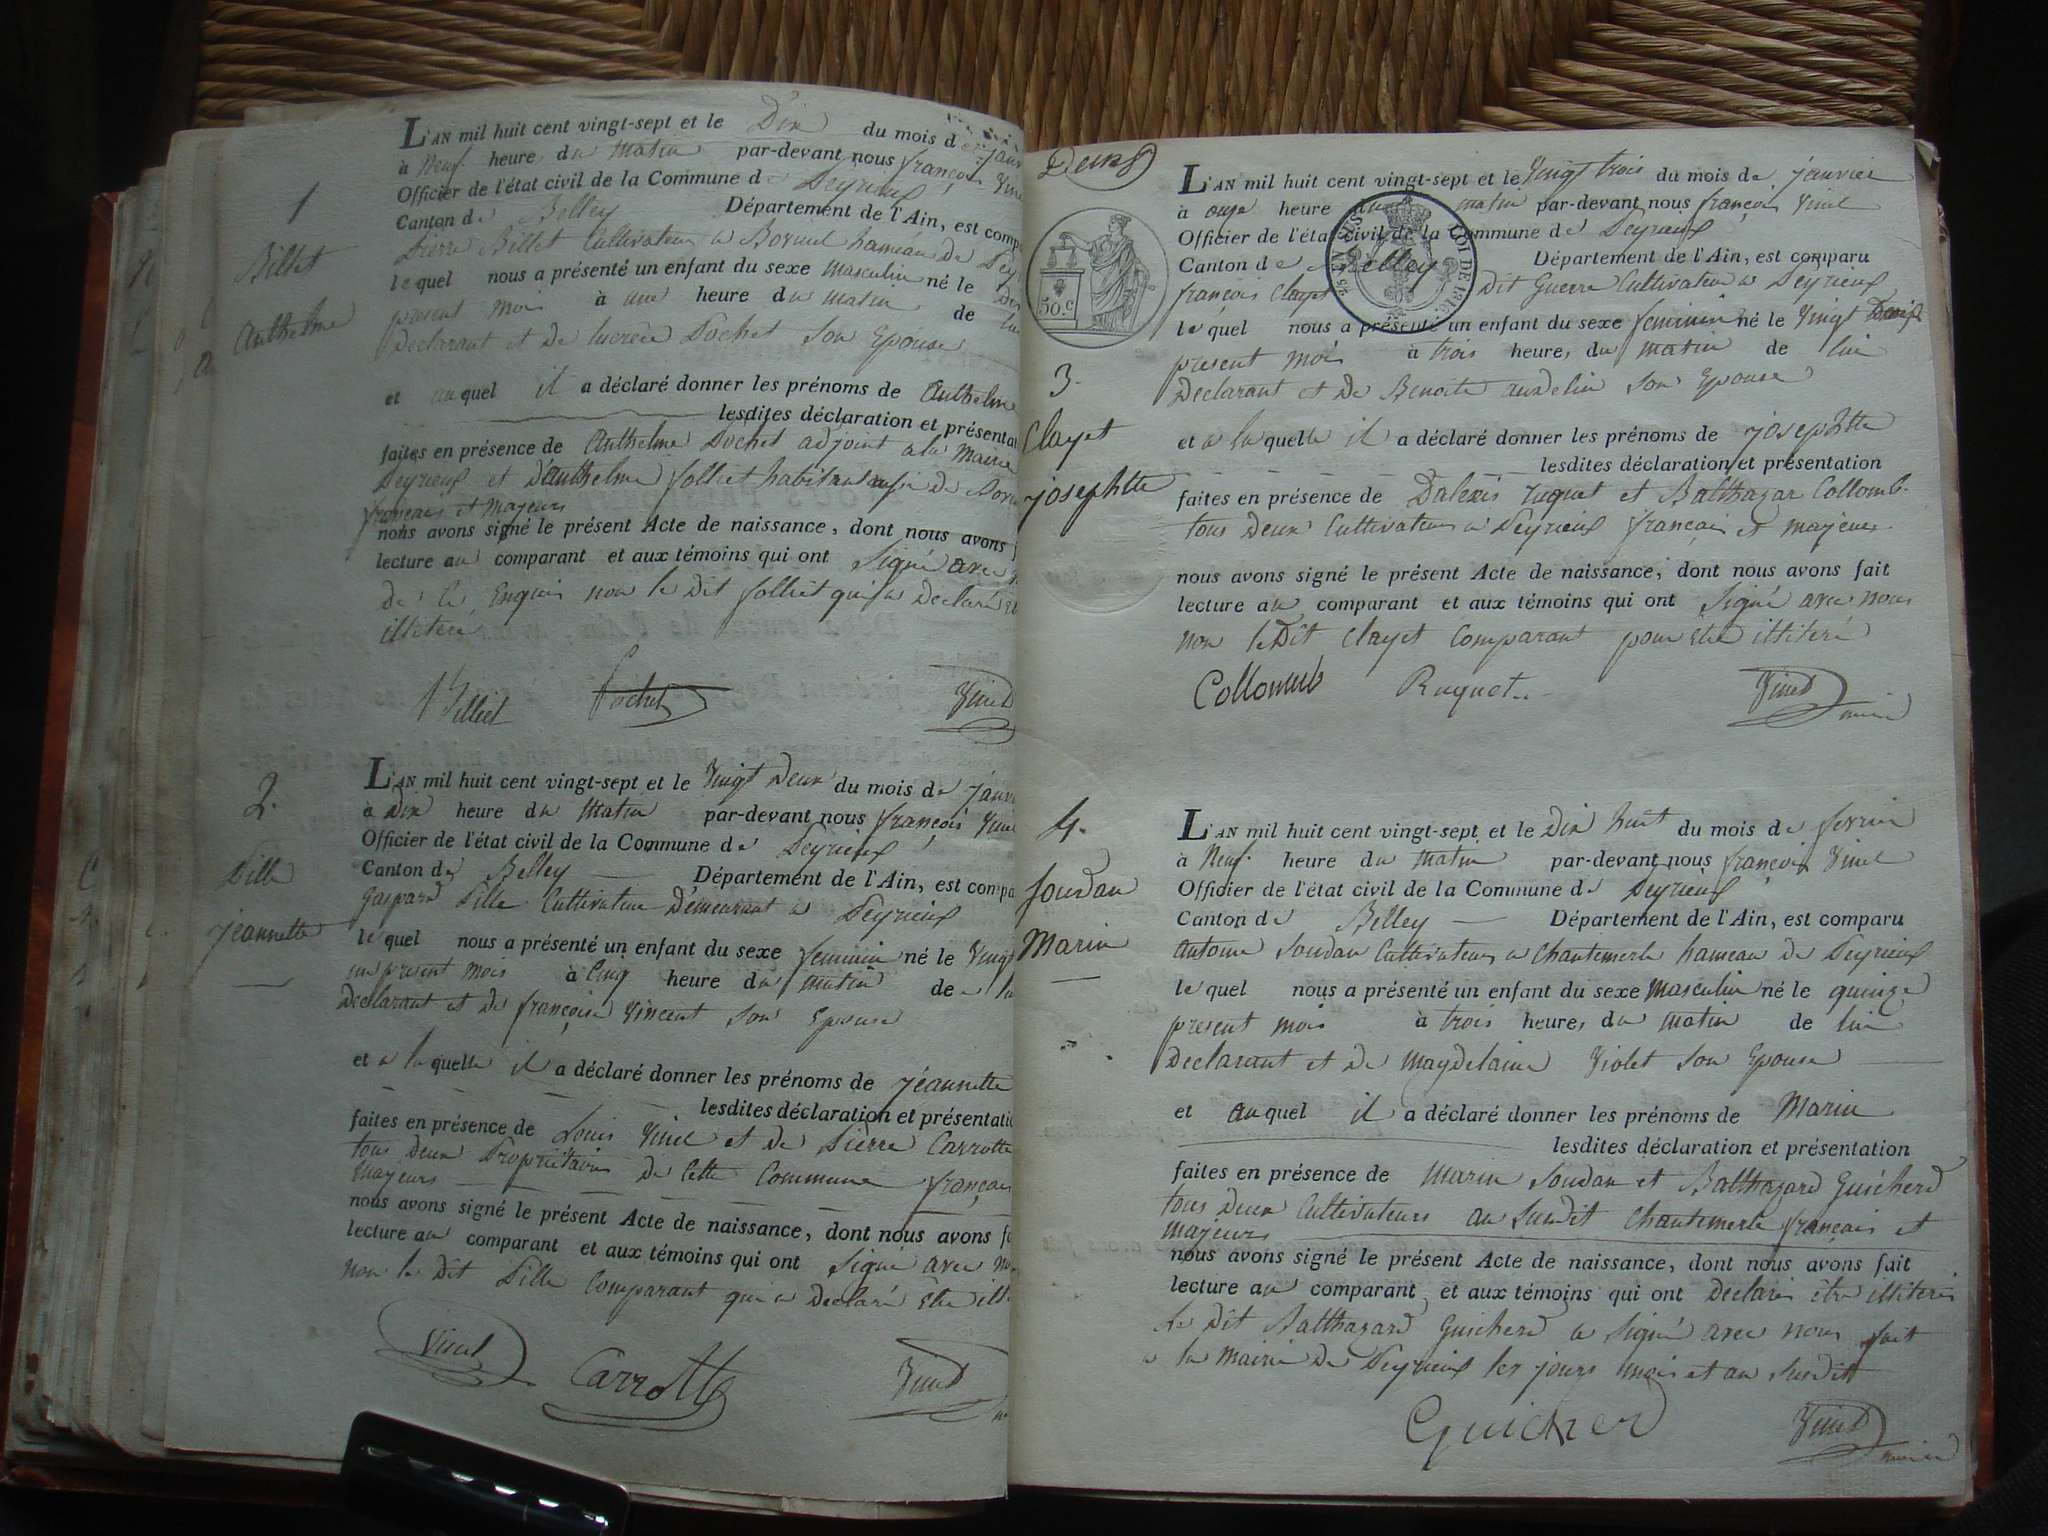 1
Billet
Anthelme
L'AN mil huit cent vingt-sept et le Dix du mois de janv
à Neuf heure du Matin par-devant nous françois Vinet
Officier de l'état civil de la Commune de Peyrieux
Canton de Belley Département de l'Ain, est comp
Pierre Billet Cultivateur a hameau de Pey
lequel nous a présenté un enfant du sexe masculin né le
present mois à une heure du matin de lui
Declarant et de lucrèce Pochet son Epouse
et auquel il a déclaré donner les prénoms de Anthelme
lesdites déclaration et présentat
faites en présence de Anthelme Pochet adjoint a la Mairie
Peyrieux et d'anthelme folliet habitant aussi de
francais et Majeurs
nous avons signé le présent Acte de naissance, dont nous avons f
lecture au comparant et aux témoins qui ont Signé avec
de ce Enquis non le Dit folliet qui a Declaré
illiteré
Billiet Pochet Vinet
2.
Pille
jeannette
L'AN mil huit cent vingt-sept et le Vingt Deux du mois de janv
à Dix heure du Matin par-devant nous françois Vinet
Officier de l'état civil de la Commune de Peyrieux
Canton de Belley Département de l'Ain, est compa
Gaspard Pille Cultivateur Demeurant a Peyrieux
lequel nous a présenté un enfant du sexe feminin né le Vingt
un present mois à Cinq heure du matin de lu
Declarant et de françoise Vincent son Epouse
et a laquelle il a déclaré donner les prénoms de jeannette
lesdites déclaration et présentatio
faites en présence de Louis Vinet et de Pierre Carrotte
tous deux Propriétaires de Cette Commune françai
Majeurs
nous avons signé le présent Acte de naissance, dont nous avons f
lecture au comparant et aux témoins qui ont Signé avec no
non le dit Pille Comparant qui a Declaré Etre illi
Vinet Carrotte Vinet
Deux
50.c
LOI DE 1816
3.
Clayet
josephtte
L'AN mil huit cent vingt-sept et le Vingt trois du mois de janvier
à onze heure du matin par-devant nous françois Vinet
Officier de l'état civil de la Commune de Peyrieux
Canton de Belley Département de l'Ain, est comparu
françois Clayet Dit Guerre Cultivateur a Peyrieux
lequel nous a présenté un enfant du sexe feminin né le Vingt Deux
present mois à trois heure, du matin de lui
Declarant et de Benoite son Epouse
et a laquelle il a déclaré donner les prénoms de josephtte
lesdites déclaration et présentation
faites en présence de Dalexis ruquet et Balthazar Collomb
tous deux Cultivateurs a Peyrieux francais et majeurs
nous avons signé le présent Acte de naissance, dont nous avons fait
lecture au comparant et aux témoins qui ont signé avec nous
non le Dit Clayet Comparant pour Etre illiteré
Collomb Ruquet Vinet
maire
4.
Soudan
Marin
L'AN mil huit cent vingt-sept et le Dix huit du mois de fevrier
à Neuf heure du matin par-devant nous françois Vinet
Officier de l'état civil de la Commune de Peyrieux
Canton de Belley Département de l'Ain, est comparu
antoine Soudan Cultivateur a Chantemerle hameau de Peyrieux
lequel nous a présenté un enfant du sexe Masculin né le quinze
present mois à trois heure, du matin de lui
Declarant et de magdelaine Violet son Epouse
et auquel il a déclaré donner les prénoms de Marin
lesdites déclaration et présentation
faites en présence de Marin Soudan et Balthazard Guicherd
tous deux Cultivateurs au Susdit Chantemerle francais et
majeurs
nous avons signé le présent Acte de naissance, dont nous avons fait
lecture au comparant et aux témoins qui ont Declarés être illiterés
Le Dit Balthazard Guicherd a signé avec nous fait
a la Mairie de Peyrieux les jours mois et an susdit
Guicherd Vinet
maire